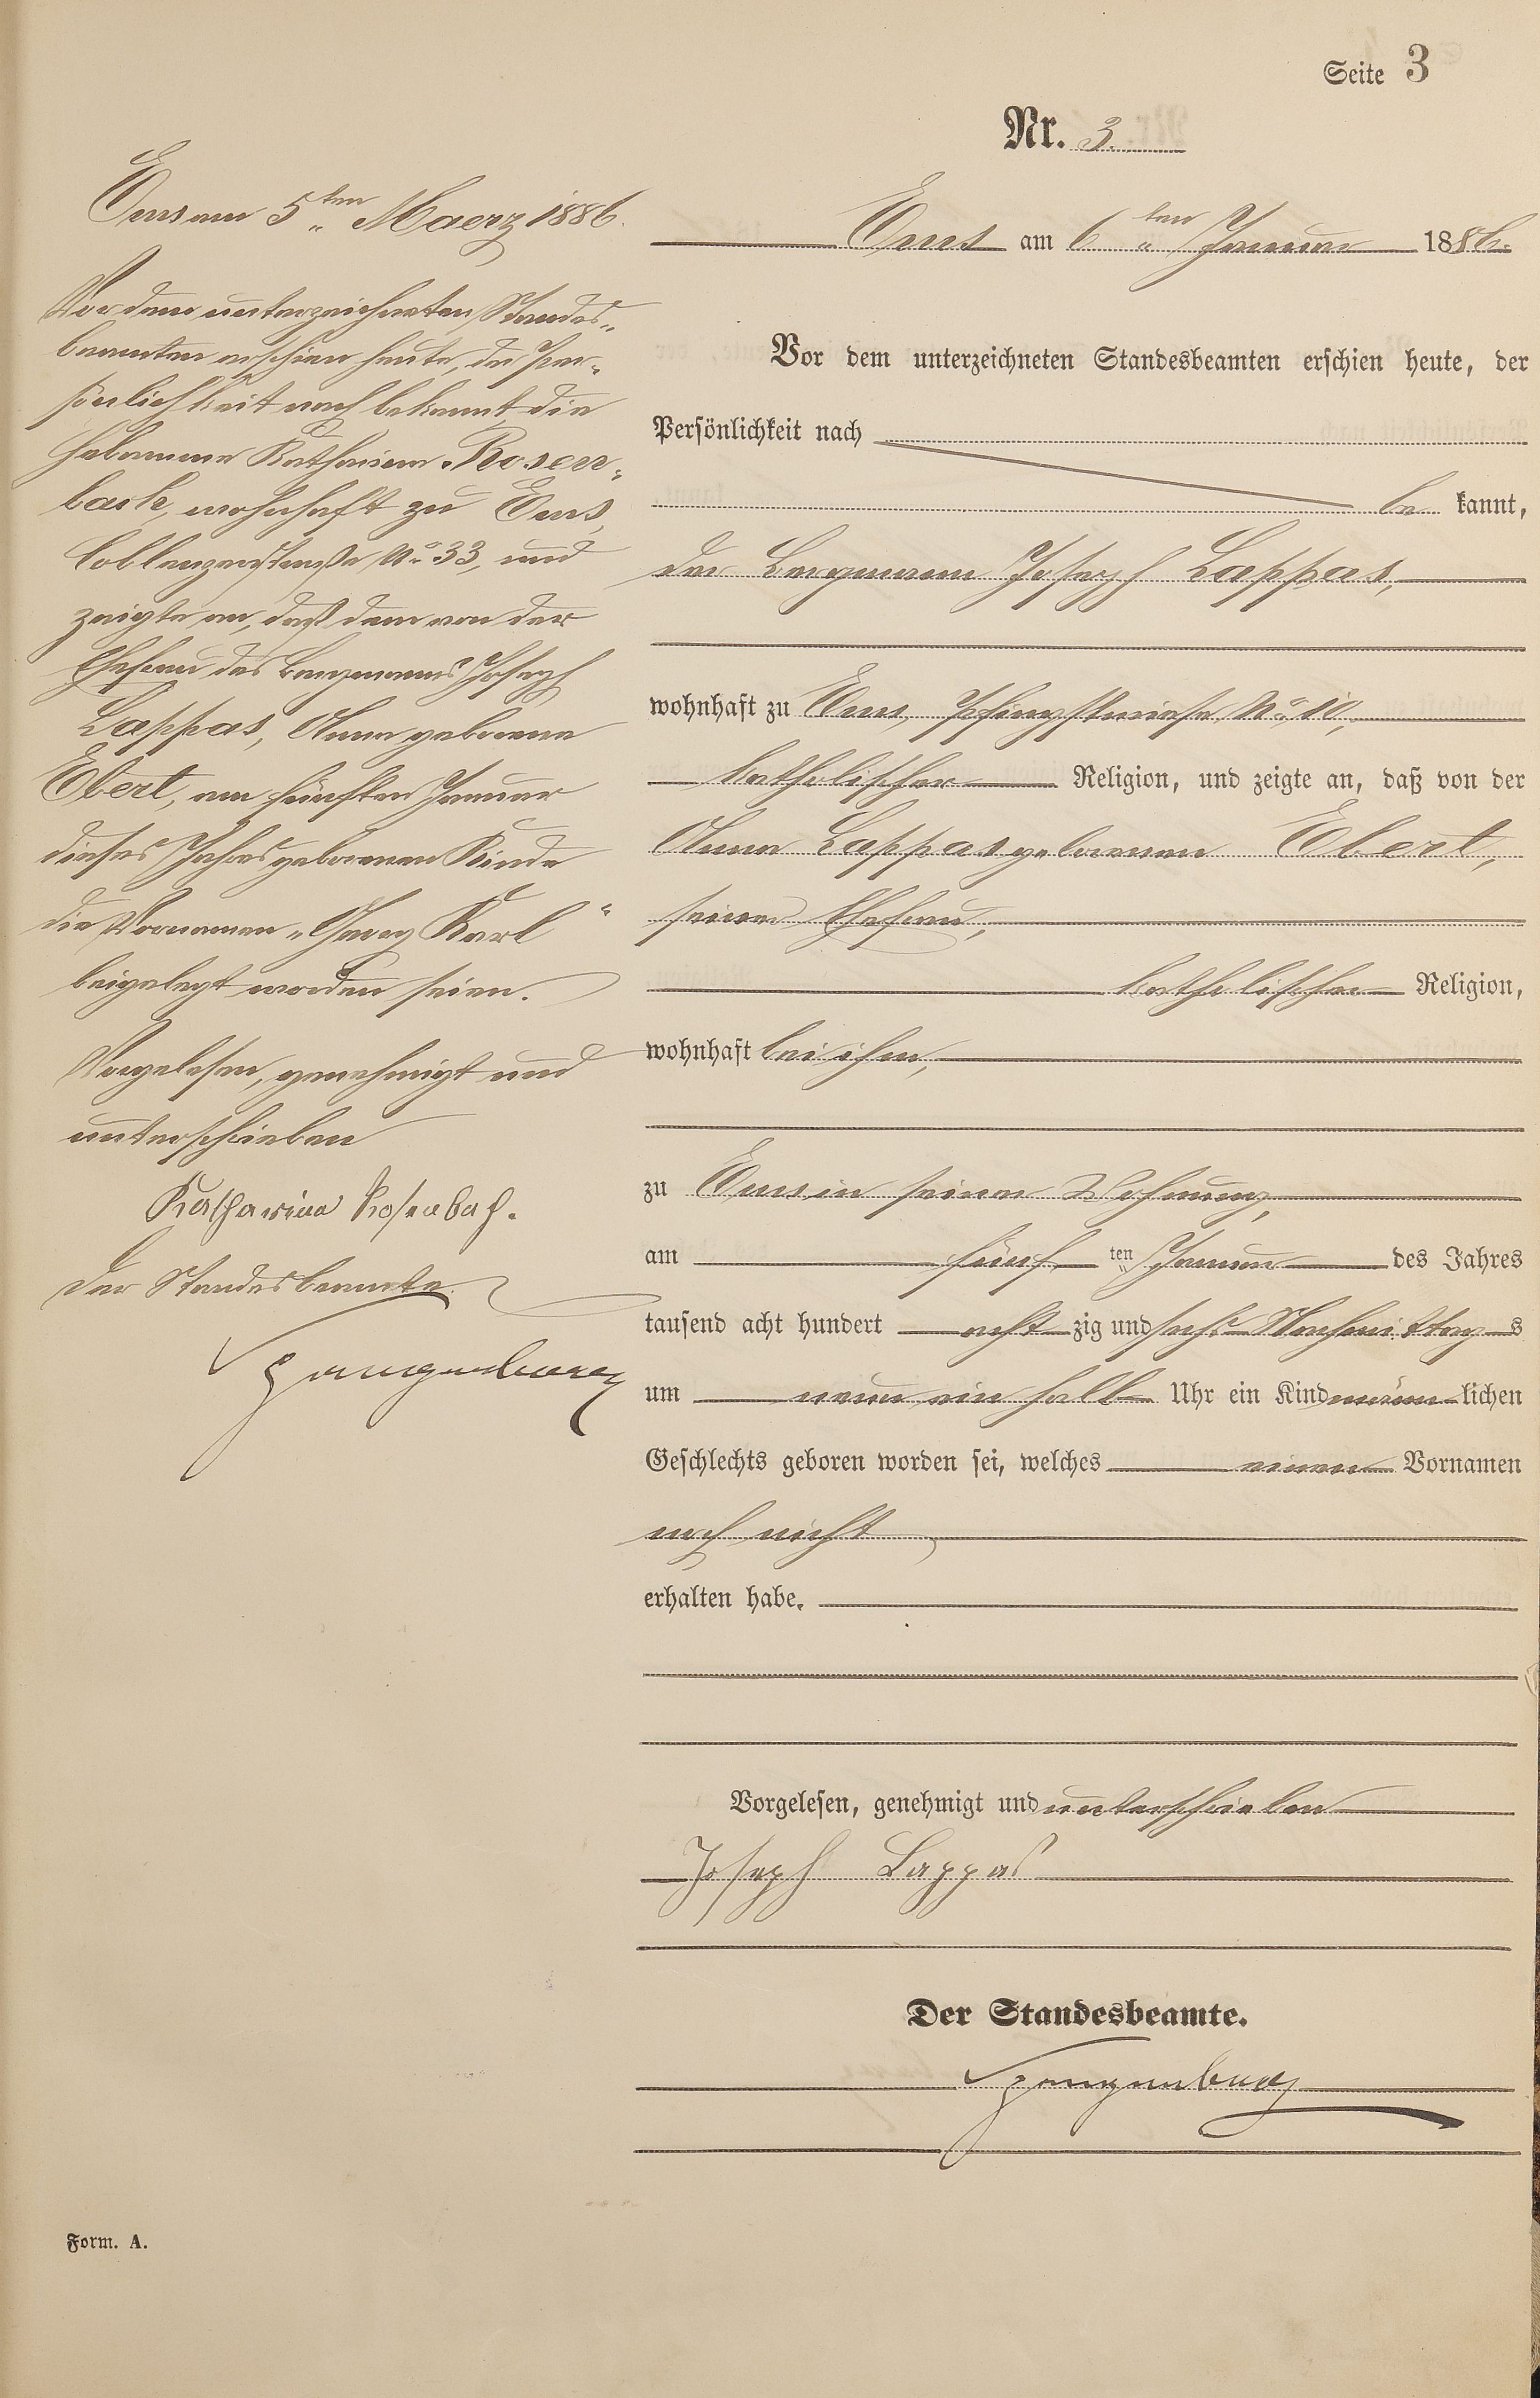 Seite 3
Nr. 3.
Ems am 5ten Maerz 1886.
Vor dem unterzeichneten Standes-
beamten erschien heute, der Per-
sönlichkeit nach bekannt, die
Hebamme Katharina Rosen-
bach, wohnhaft zu Ems,
Coblenzerstraße No 33, und
zeigte an, daß dem von der
Ehefrau des Bergmanns Joseph
Lappas, Anna geborene
Ebert, am fünften Januar
dieses Jahres geborenen Kinde
die Vornamen „Georg Karl“
beigelegt worden seien.
Vorgelesen, genehmigt und
unterschrieben
Katharina Rosenbach.
Der Standesbeamte.
Ems am 6ten Januar 1886.
Vor dem unterzeichneten Standesbeamten erschien heute, der
Persönlichkeit nach
bekannt,
der Bergmann Joseph Lappas,
wohnhaft zu Ems, Pfingstwiese No 10,
katholischer Religion, und zeigte an, daß von der
Anna Lappas geborenen Ebert,
seiner Ehefrau,
katholischer Religion,
wohnhaft bei ihm,
zu Ems in seiner Wohnung,
am fünften Januar des Jahres
tausend acht hundert achtzig und sechs Nachmittags
um neun ein halb Uhr ein Kind männlichen
Geschlechts geboren worden sei, welches einen Vornamen
noch nicht
erhalten habe.
Vorgelesen, genehmigt und unterschrieben
Joseph Lappas
Der Standesbeamte.
Form. A.